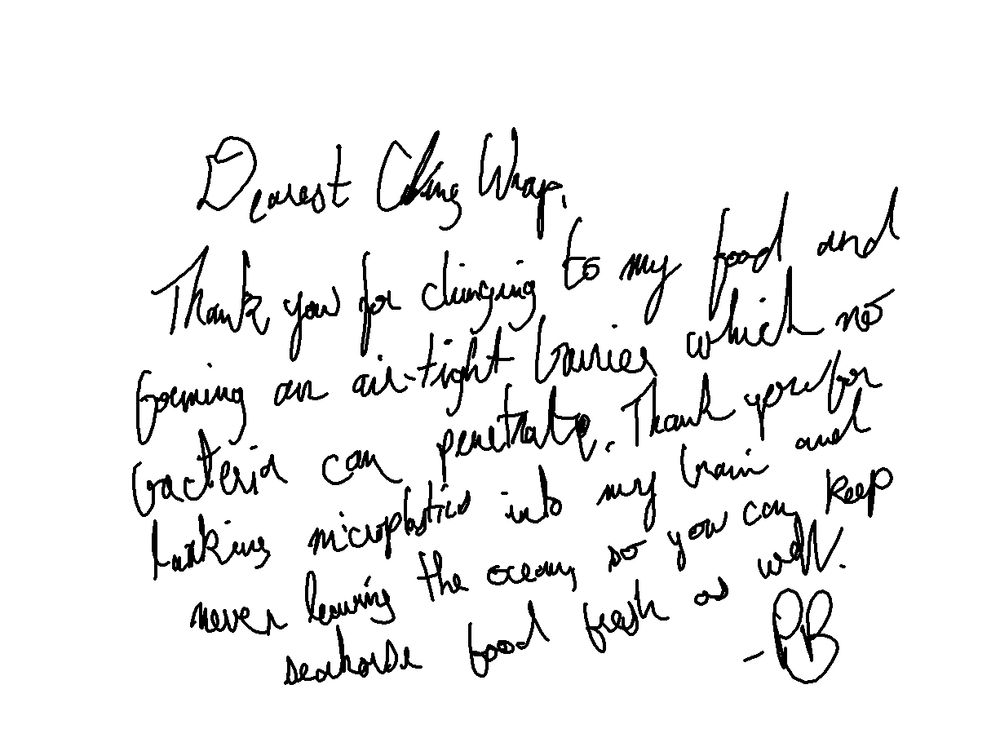 Dearest Cling Wrap,
Thank you for clinging to my food and
forming an air-tight barrier which no
bacteria can penetrate. Thank you for
microplastics into my brain and
never leaving the ocean, so you can keep
seahorse food fresh as well.
-PB